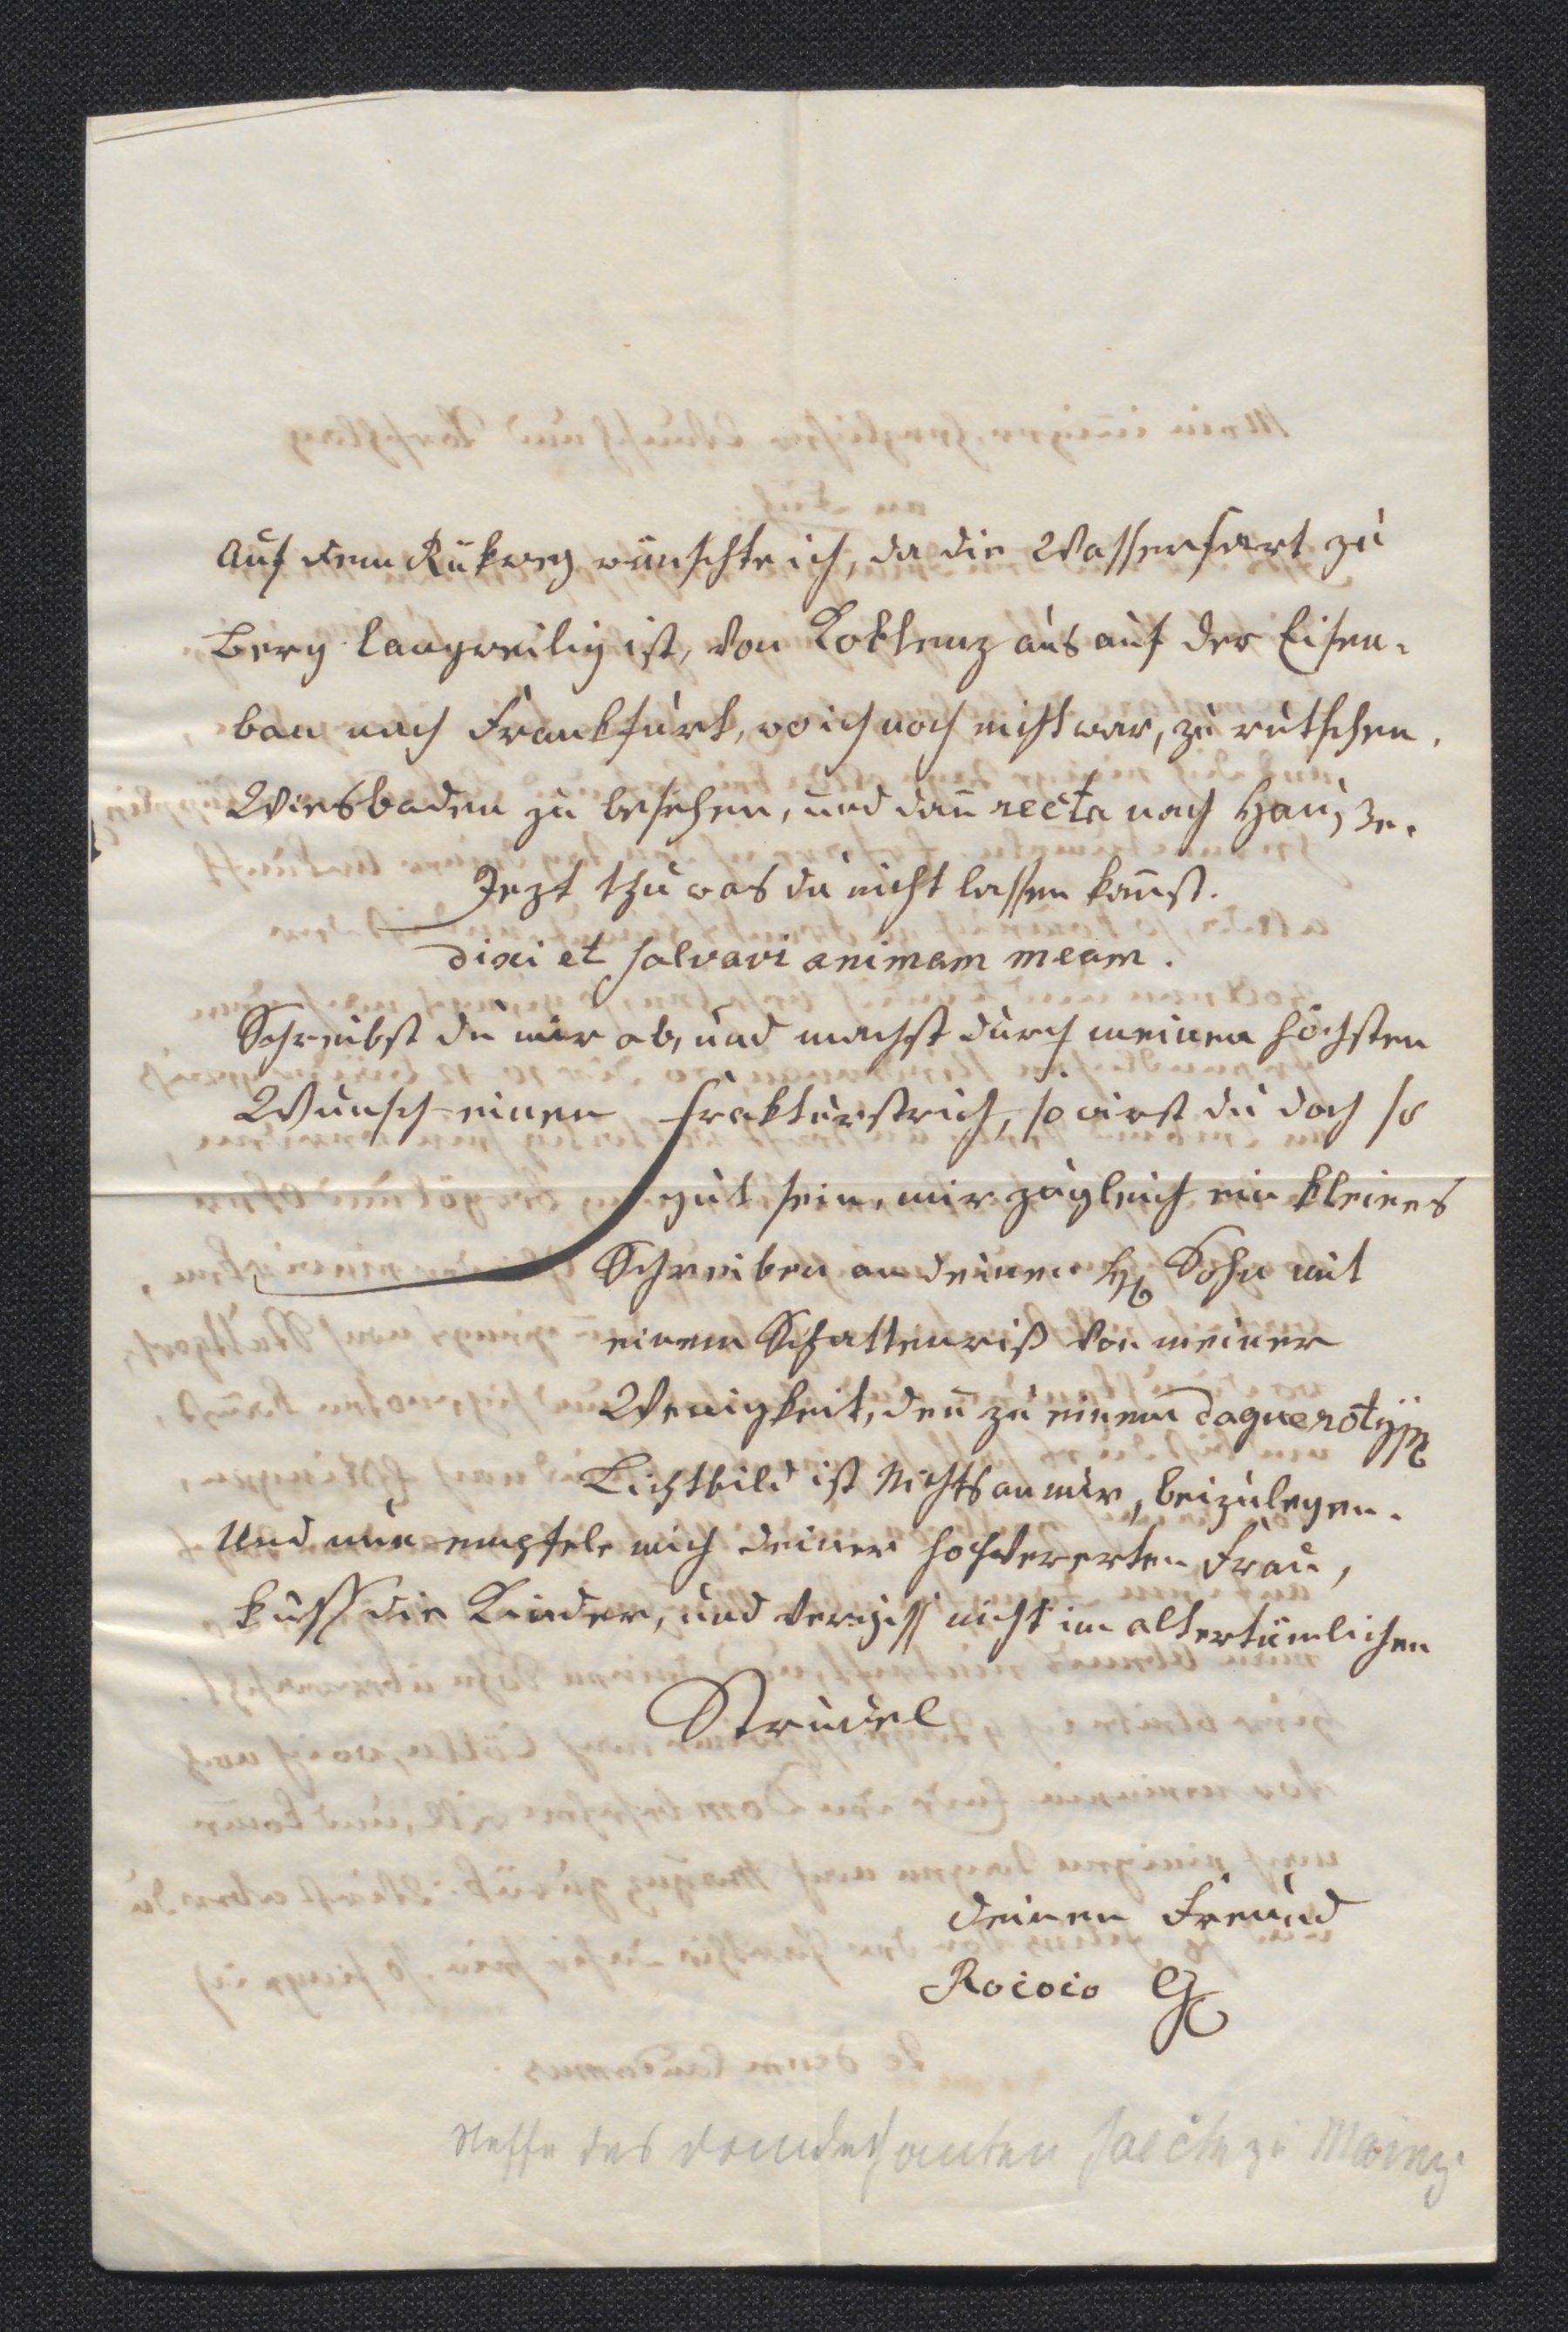 Auf dem Rükweg wünschte ich, da die Wasserfart zu
Berg langweilig ist, von Koblenz aus auf der Eisen-
ban nach Frankfurt, wo ich noch nicht war, zu rutschen,
Wiesbaden zu besehen, und dan̄ recta nach Hause.
Jezt thu was du nicht lassen kan̄st.
Dixi et salvavi animam meam.
Schreibst du mir ab, und machst durch meinen höchsten
Wunsch einen Frakturstrich, so wirst du doch so
gut sein, mir zugleich ein kleines
Schreiben an deinen H. Sohn mit
einem Schattenriß von meiner
Wenigkeit, den̄ zu einem Daguerotyp
Lichtbild ist Nichts an mir, beizulegen.
Und nun empfele mich deiner hochvererten Frau,
küsse die Kinder, und vergiss nicht im altertümlichen
Strudel
deinen Freund
Rococo G
Neffe des Domdechanten zu Mainz